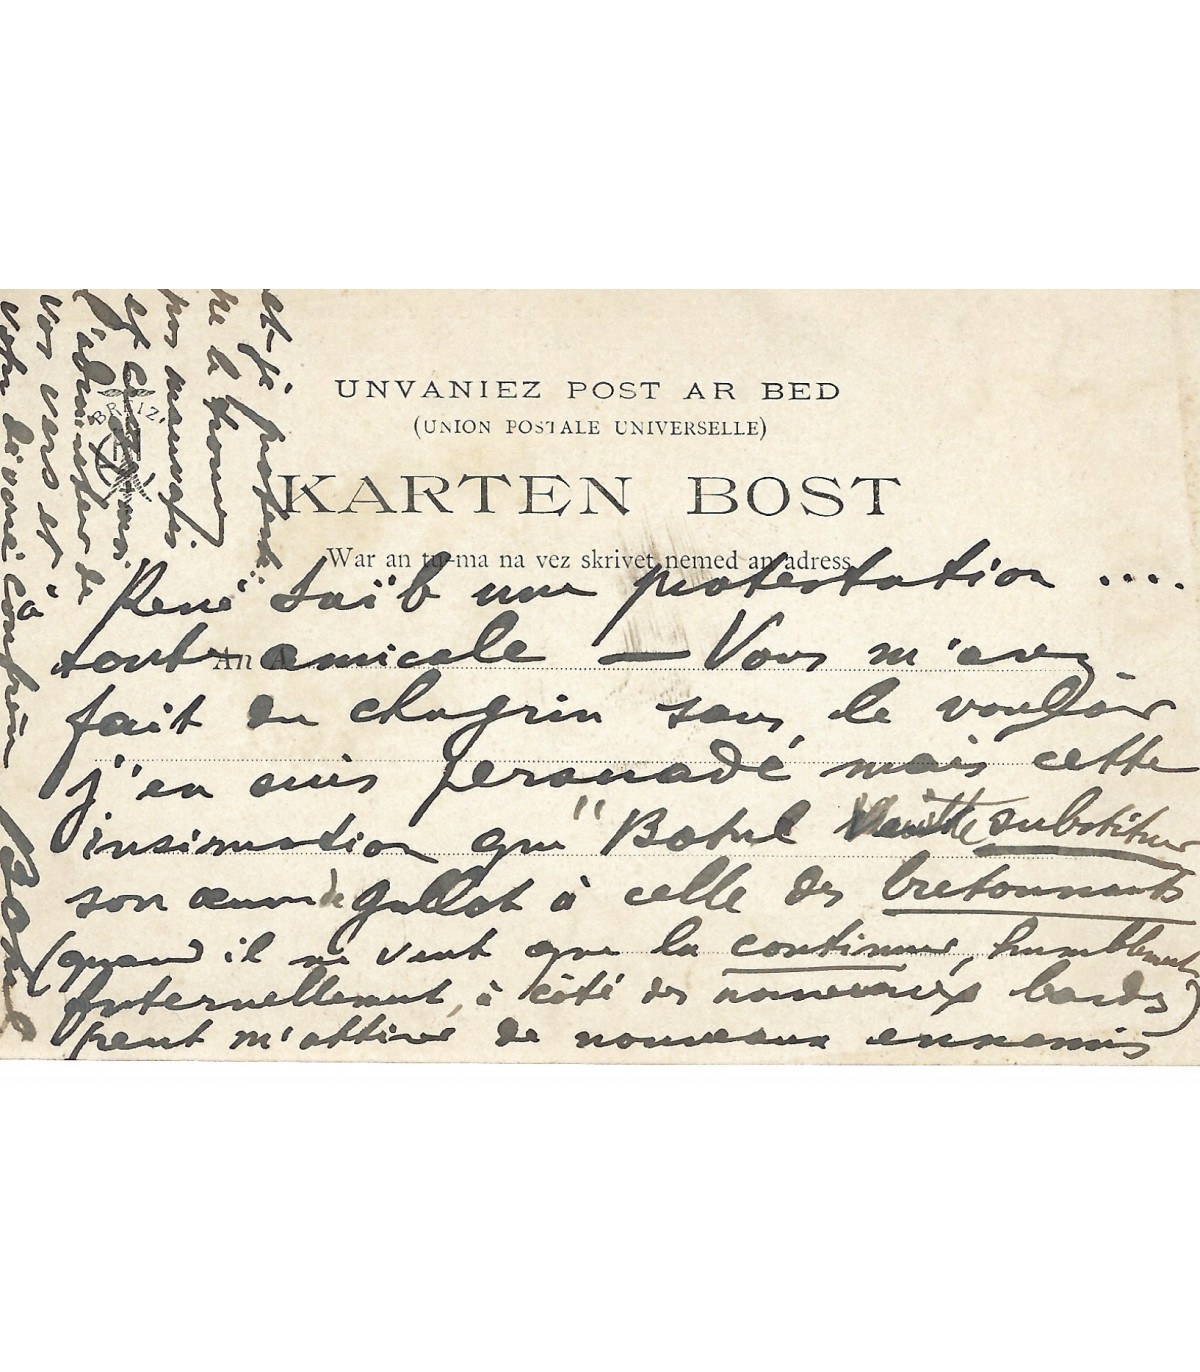 UNVANIEZ POST AR BED
(UNION POSTALE UNIVERSELLE)
BREIZ
KARTEN BOST
War an tu-ma na vez skrivet nemed an adress
An A
René Saïb une protestation ....
tout amicale — Vous m'avez
fait du chagrin sans le vouloir
j'en suis persuadé mais cette
insinuation que "Botrel substituer
son œuvre de à celle des bretonnants
(quand il ne veut que la continuer, humblement
fraternellement, à côté des nouveaux bardes)
peut m'attirer de nouveaux ennemis
et je proteste..
ne le trouvez
pas mauvais
et
l'admirer de
vos vers et
votre dévoué confrère
à
Botrel